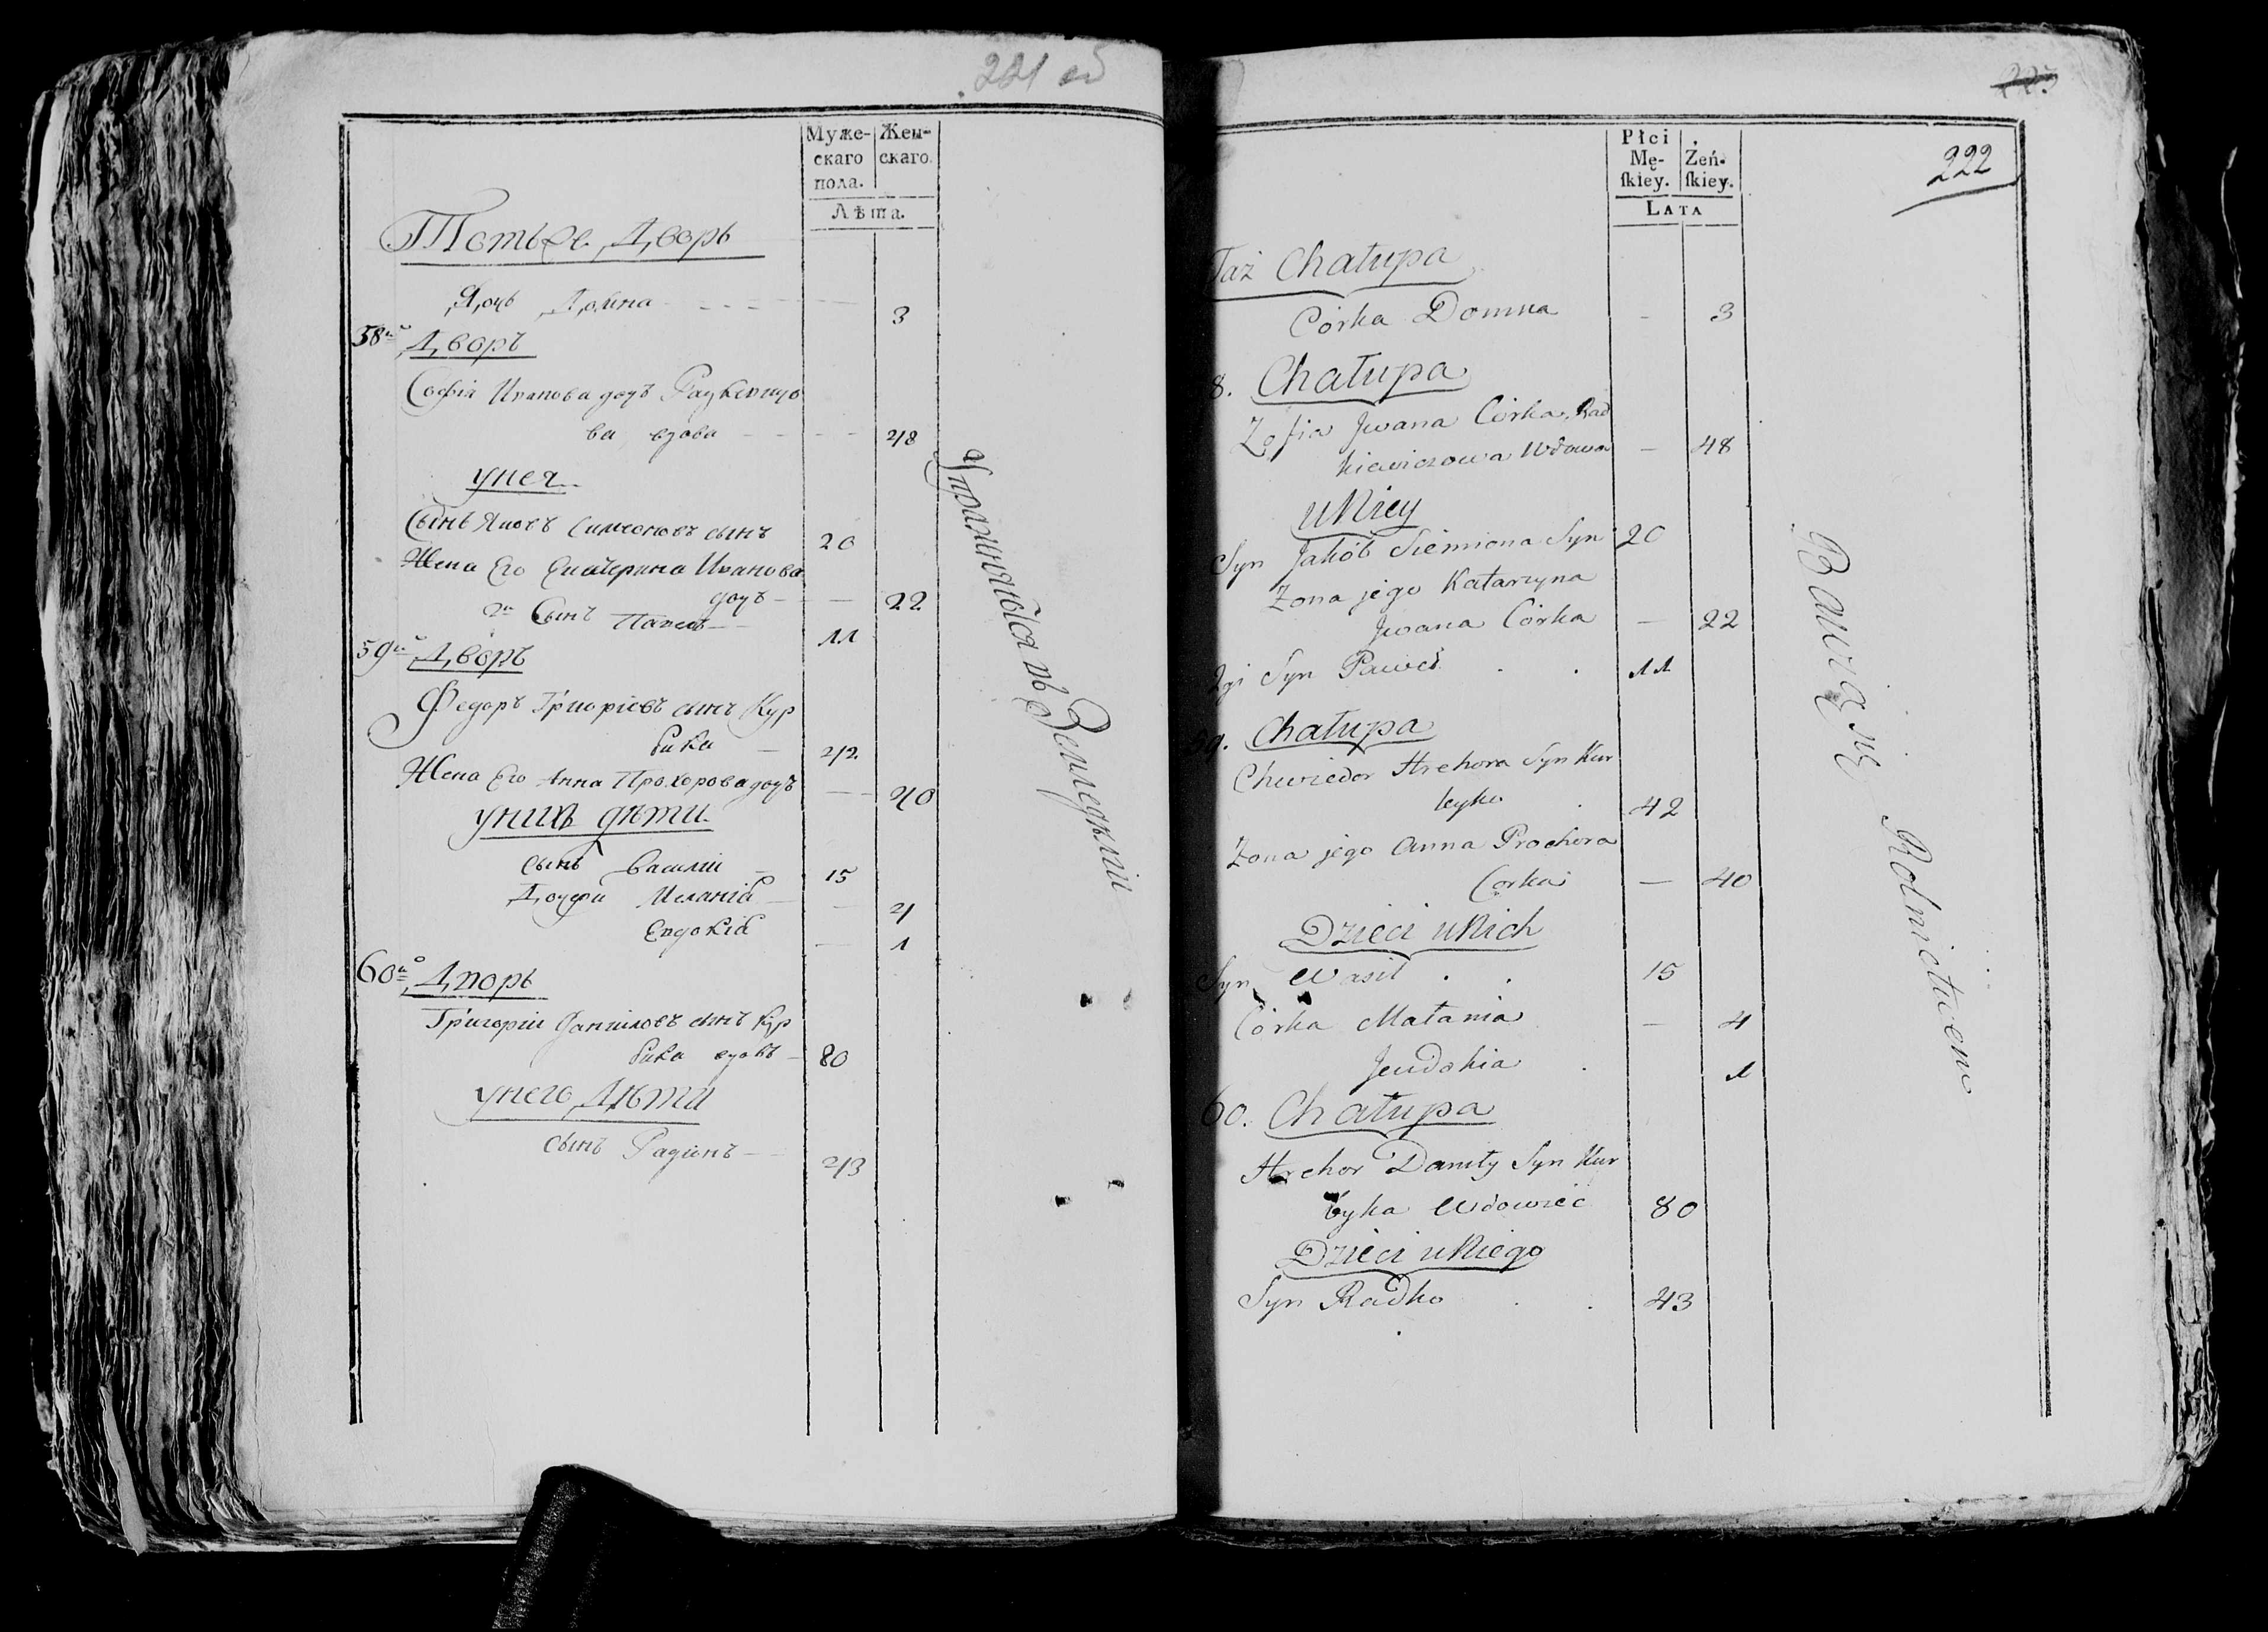 221 об
Муже-
скаго
пола.
Жен-
скаго.
Лѣта.
Тотъже Дворъ
Дочь Домна 3
58й Дворъ
Софія Иванова дочь Радкевичо
ва вдова 48
у нея
Сынъ Яковъ Симеоновъ сынъ 20
Жена Его Екатерина Иванова
дочь 22
2й Сынъ Павелъ 11
59й Дворъ
Федоръ Григоріевъ сынъ Кур
бика 42
Жена Его Анна Прохорова дочь 40
у нихъ дѣти
сынъ Василій 15
Дочери Меланія 4
Евдокія 1
60й Дворъ
Григорій Даниловъ сынъ Кур
бика вдовъ 80
у него Дѣти
сынъ Радіонъ 43
Упражняются въ Земледѣліи
223
222
Płci
Mę-
ſkiey.
Żeń-
ſkiey.
LATA
Taż Chałupa
Córka Domna - 3
8. Chałupa
Zofia Jwana Córka Rad
kiewiczowa Wdowa - 48
u Niey
Syn Jakób Siemiona Syn 20
Żona jego Katarzyna
Jwana Córka - 22
2gi Syn Paweł 11
59. Chałupa
Chwiedor Hrehora Syn Kur
byka 42
Żona jego Anna Prochora
Corka - 40
Dzieci u Nich
Syn Wasil 15
Córka Małania - 4
Jeudokia 1
60. Chałupa
Hrehor Daniły Syn Kur
byka Wdowiec 80
Dzieci u Niego
Syn Radko 43
Bawią się Rolnictwem